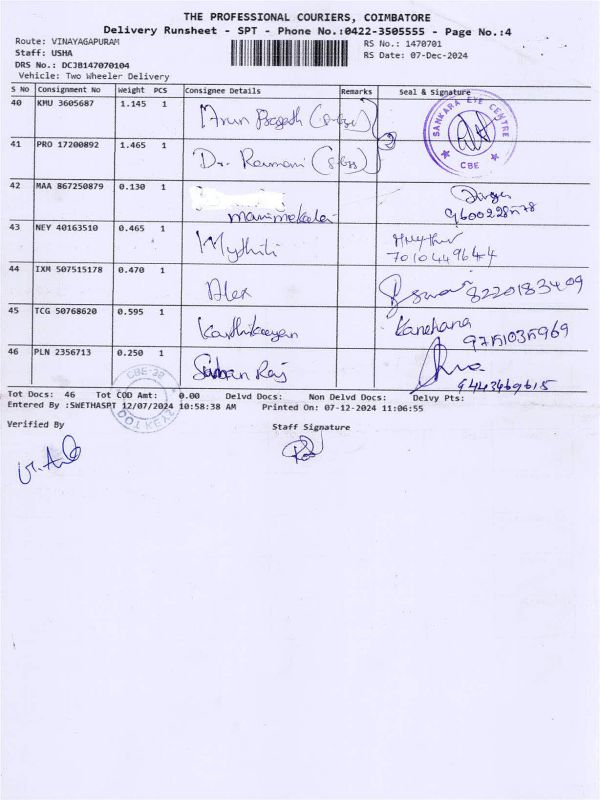 THE PROFESSIONAL COURIERS, COIMBATORE
Delivery Runsheet - SPT - Phone No.:0422-3505555 - Page No.:4
Route: VINAYAGAPURAM
Staff: USHA
RS No.: 1470701
DRS No.: DCJB147070104
RS Date: 07-Dec-2024
Vehicle: Two Wheeler Delivery
S No Consignment No Weight PCS Consignee Details Remarks Seal & Signature
40 KMU 3605687 1.145 1 Arun Pragash
SANKARA EYE CENTRE CBE
41 PRO 17200892 1.465 1 Dr. Ramani
2
42 MAA 867250879 0.130 1 manimekalai
43 NEY 40163510 0.465 1 Mythili 7010449644
44 IXM 507515178 0.470 1 Alex 8220183409
45 TCG 50768620 0.595 1 Karthikeyan Kanchana 9751035969
46 PLN 2356713 0.250 1 Saban Raj 9443469615
Tot Docs: 46 Tot COD Amt: 0.00 Delvd Docs: Non Delvd Docs: Delvy Pts:
Entered By :SWETHASPT 12/07/2024 10:58:38 AM Printed On: 07-12-2024 11:06:55
Verified By Staff Signature